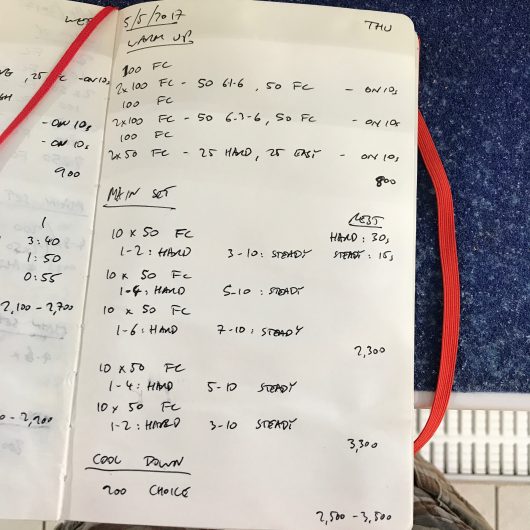 WED
, 25 FC - ON 10s
- ON 10s
- ON 10s
900
1
3:40
1:50
0:55
2,100 - 2,700
5/5/2017 THU
WARM UP
100 FC
2x100 FC - 50 61-6, 50 FC - ON 10s
100 FC
2x100 FC - 50 6-3-6, 50 FC - ON 10s
100 FC
2x50 FC - 25 HARD, 25 EASY - ON 10s
800
MAIN SET
REST
10 x 50 FC HARD: 30s
1-2: HARD 3-10: STEADY STEADY: 15s
10 x 50 FC
1-4: HARD 5-10: STEADY
10 x 50 FC
1-6: HARD 7-10: STEADY
2,300
10 x 50 FC
1-4: HARD 5-10 STEADY
10 x 50 FC
1-2: HARD 3-10 STEADY
3,300
COOL DOWN
200 CHOICE
2,500 - 3,500